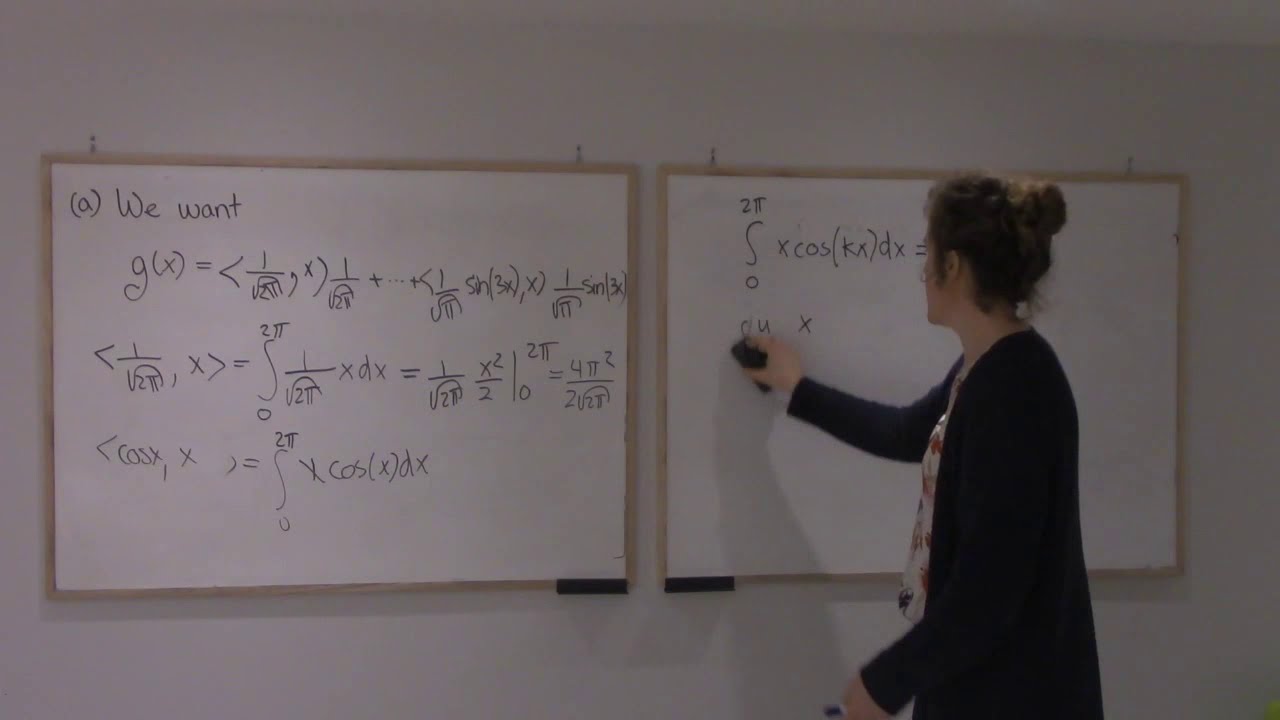 (a) We want
g(x) = <1/√2π, x> 1/√2π + ... + <1/√π sin(3x), x> 1/√π sin(3x)
<1/√2π, x> = ∫₀^2π 1/√2π x dx = 1/√2π x²/2 |₀^2π = 4π²/2√2π
<cosx, x > = ∫₀^2π x cos(x)dx
∫₀^2π x cos(kx)dx =
du x